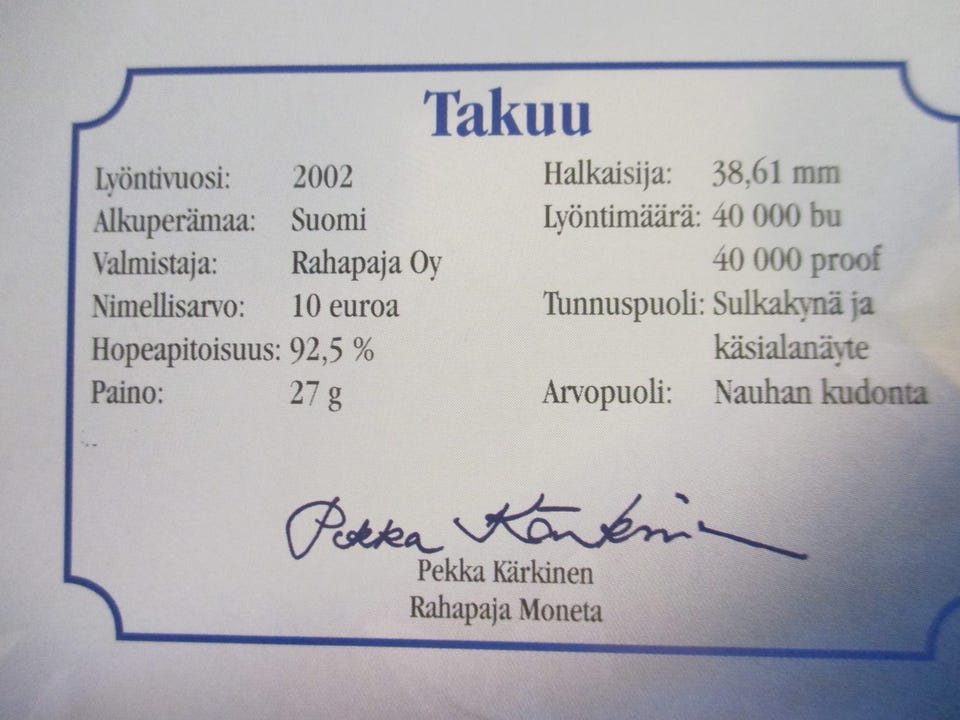 Takuu
Lyöntivuosi: 2002
Alkuperämaa: Suomi
Valmistaja: Rahapaja Oy
Nimellisarvo: 10 euroa
Hopeapitoisuus: 92,5 %
Paino: 27 g
Halkaisija: 38,61 mm
Lyöntimäärä: 40 000 bu
40 000 proof
Tunnuspuoli: Sulkakynä ja
käsialanäyte
Arvopuoli: Nauhan kudonta
Pekka Kärkinen
Pekka Kärkinen
Rahapaja Moneta